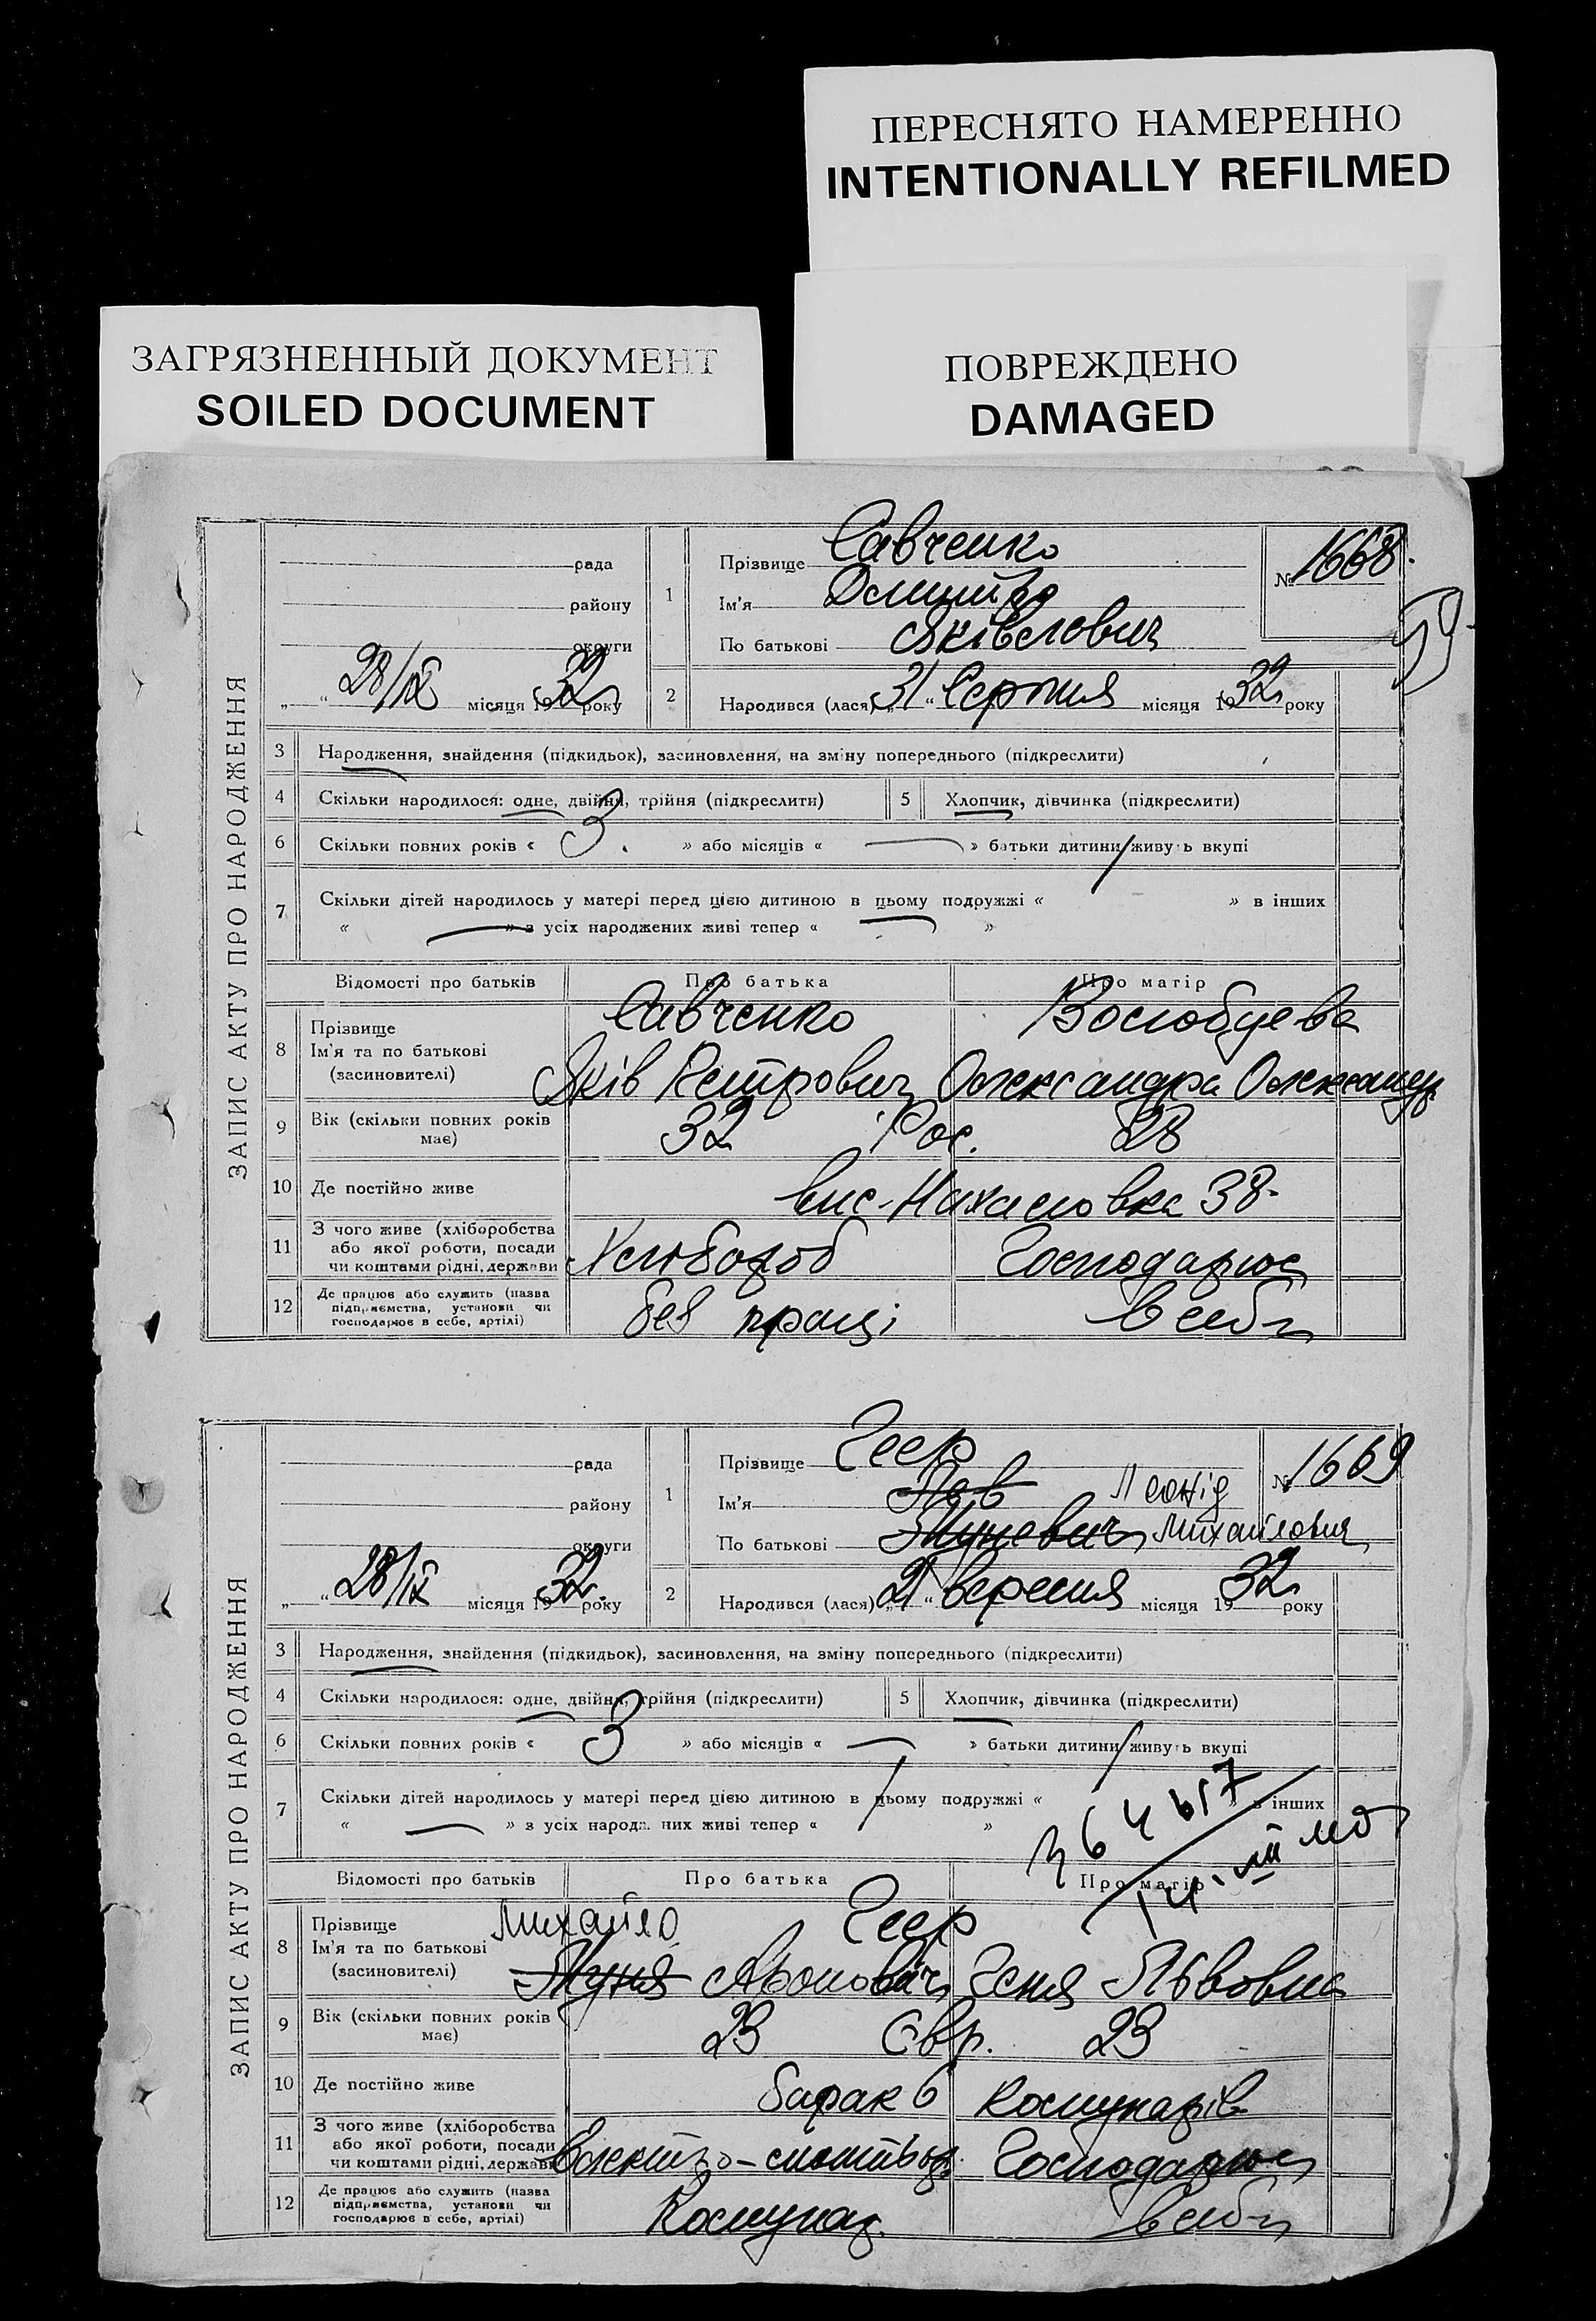 ПЕРЕСНЯТО НАМЕРЕННО
INTENTIONALLY REFILMED
ЗАГРЯЗНЕННЫЙ ДОКУМЕНТ
SOILED DOCUMENT
ПОВРЕЖДЕНО
DAMAGED
ЗАПИС АКТУ ПРО НАРОДЖЕННЯ
рада
району
округи
„ “ 28/IX місяця 1932 року
1 Прізвище Савченко
Ім'я Дмитро
По батькові Яківлович
№ 1668.
59
2 Народився (лася) „31“ Серпня місяця 1932 року
3 Народження, знайдення (підкидьок), засиновлення, на зміну попереднього (підкреслити)
4 Скільки народилося: одне, двійня, трійня (підкреслити) 5 Хлопчик, дівчинка (підкреслити)
6 Скільки повних років « 3. » або місяців « — » батьки дитини живуть вкупі
7 Скільки дітей народилось у матері перед цією дитиною в цьому подружжі « — » в інших
« — » з усіх народжених живі тепер « — »
Відомості про батьків Про батька Про матір
8 Прізвище Ім'я та по батькові (засиновителі)
Савченко
Яків Петрович
Олександра Олександр
9 Вік (скільки повних років має) 32 Рос. 28
10 Де постійно живе вис-Нахаловка 38-
11 З чого живе (хліборобства або якої роботи, посади чи коштами рідні, держави Хлібороб Господарює
12 Де працює або служить (назва підприємства, установи чи господарює в себе, артілі) без праці в себе
ЗАПИС АКТУ ПРО НАРОДЖЕННЯ
рада
району
округи
„ “ 28/IX місяця 1932. року
1 Прізвище Геер
Ім'я Лев Леонід
По батькові Михайлович
№ 1669
2 Народився (лася) „21“ вересня місяця 1932 року
3 Народження, знайдення (підкидьок), засиновлення, на зміну попереднього (підкреслити)
4 Скільки народилося: одне, двійня, трійня (підкреслити) 5 Хлопчик, дівчинка (підкреслити)
6 Скільки повних років « 3 » або місяців « — » батьки дитини живуть вкупі
7 Скільки дітей народилось у матері перед цією дитиною в цьому подружжі « » в інших
« — » з усіх народжених живі тепер « »
Відомості про батьків Про батька Про матір
8 Прізвище Ім'я та по батькові (засиновителі)
Михайло Геер
Геня Львовна
9 Вік (скільки повних років має) 23 Євр. 23
10 Де постійно живе барак 6 Комунарів
11 З чого живе (хліборобства або якої роботи, посади чи коштами рідні, держави Господарює
12 Де працює або служить (назва підприємства, установи чи господарює в себе, артілі) Комунар. в себе